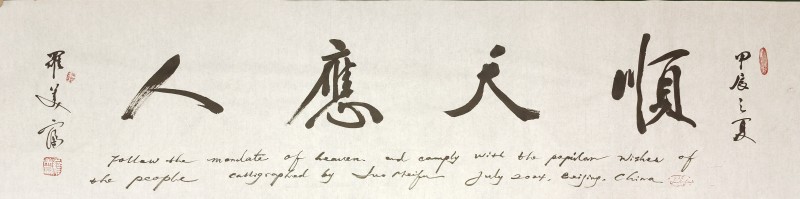 甲辰之夏
順天應人
羅美富
Follow the mandate of heaven, and comply with the popular wishes of
the people calligraphed by Luo Meifu July 2024, Beijing, China